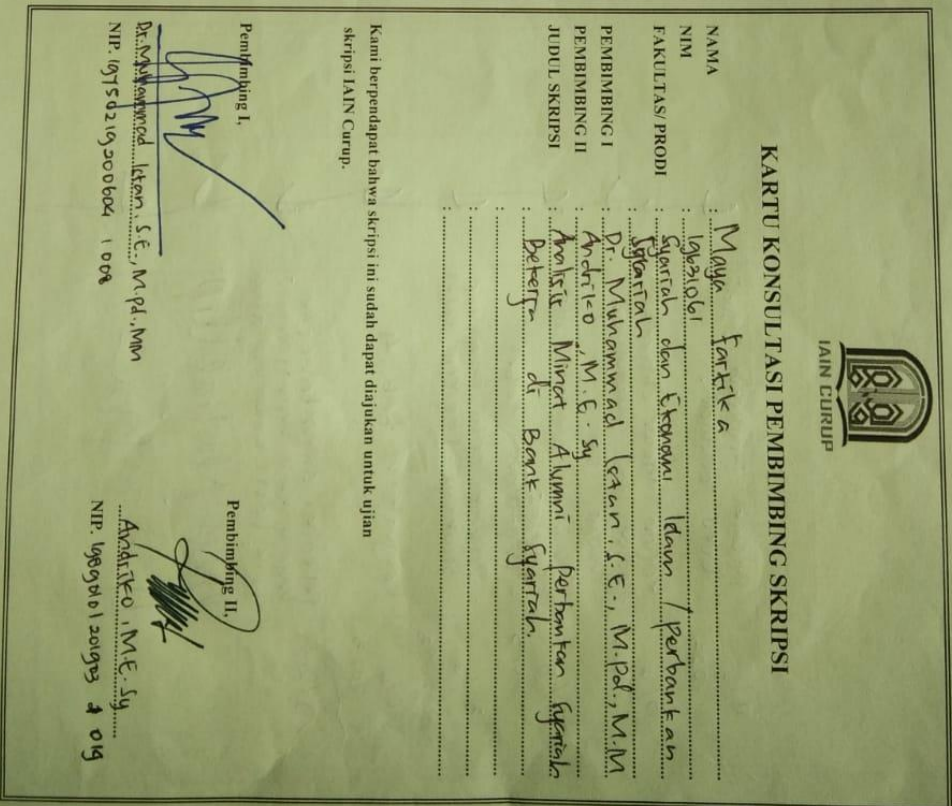 IAIN CURUP
KARTU KONSULTASI PEMBIMBING SKRIPSI
NAMA : Maya Fartika
NIM : 19631061
FAKULTAS/ PRODI : Syariah dan Ekonomi Islam / Perbankan
Syariah
PEMBIMBING I : Dr. Muhammad Istan, S.E., M.Pd., M.M
PEMBIMBING II : Andriko, M.E.Sy
JUDUL SKRIPSI : Analisis Minat Alumni Perbankan Syariah
: Bekerja di Bank Syariah.
:
:
:
Kami berpendapat bahwa skripsi ini sudah dapat diajukan untuk ujian
skripsi IAIN Curup.
Pembimbing I,
Dr. Muhammad Istan, S.E., M.Pd., MM
NIP. 19750219200604 1 008
Pembimbing II,
Andriko, M.E.Sy
NIP. 19890101 201903 1 019